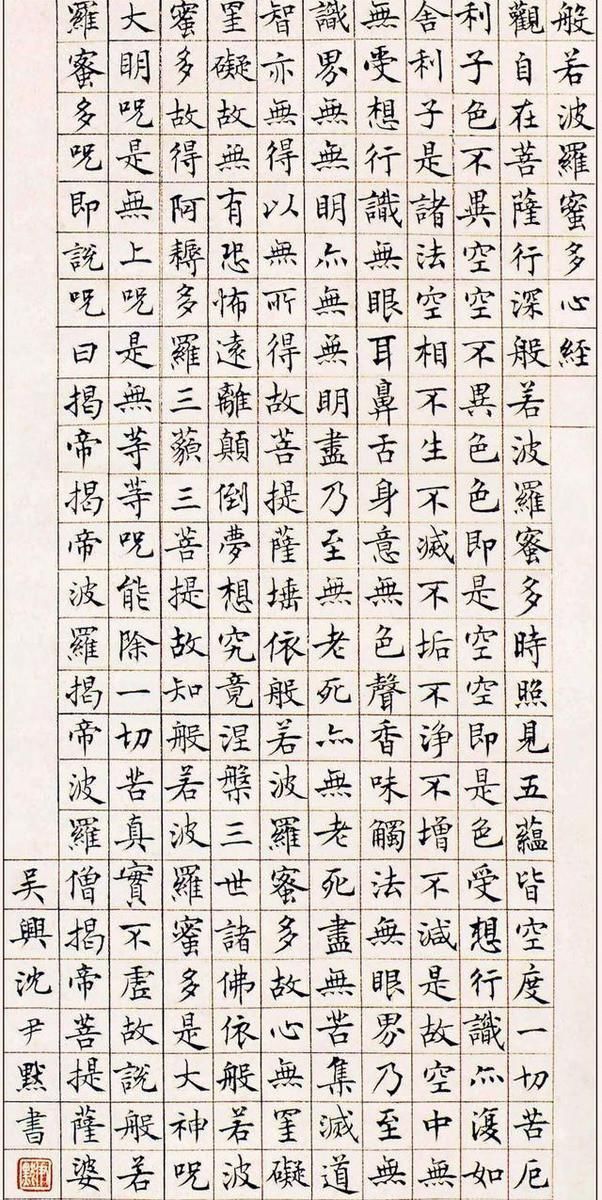 般若波羅蜜多心経
觀自在菩薩行深般若波羅蜜多時照見五蘊皆空度一切苦厄
利子色不異空空不異色色即是空空即是色受想行識亦復如
舍利子是諸法空相不生不滅不垢不淨不增不減是故空中無
無受想行識無眼耳鼻舌身意無色聲香味觸法無眼界乃至無
識界無無明亦無無明盡乃至無老死亦無老死盡無苦集滅道
智亦無得以無所得故菩提薩埵依般若波羅蜜多故心無罣礙
罣礙故無有恐怖遠離顛倒夢想究竟涅槃三世諸佛依般若波
蜜多故得阿耨多羅三藐三菩提故知般若波羅蜜多是大神呪
大明呪是無上呪是無等等呪能除一切苦真實不虛故說般若
羅蜜多呪即說呪曰揭帝揭帝波羅揭帝波羅僧揭帝菩提薩婆
吳興沈尹默書